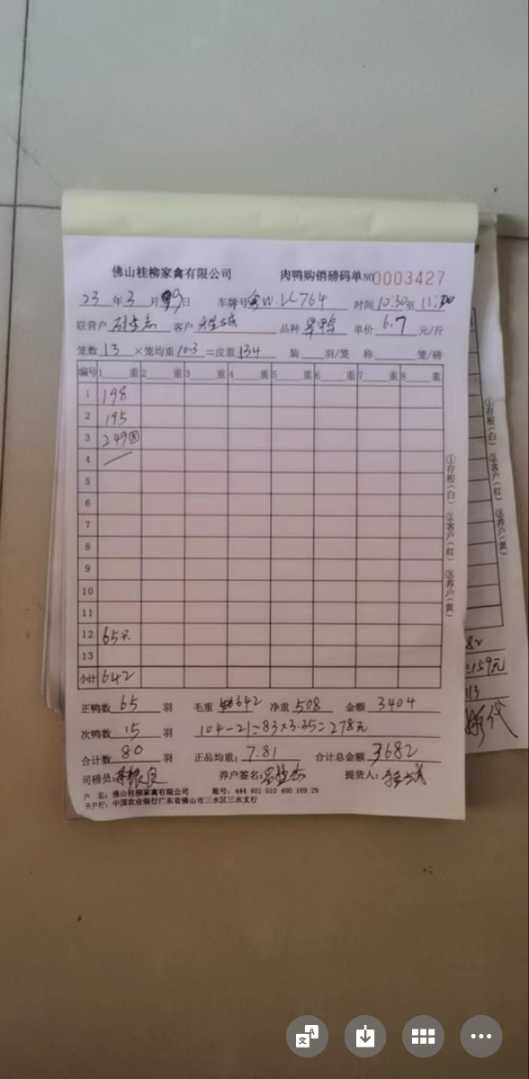 佛山桂柳家禽有限公司 肉鸭购销磅码单 NO 0003427
23 年 3 月 日 车牌号 W. 764 时间 10:30 至 11:
联营户 客户 品种 单价 6.7 元/斤
笼数 13 ×笼均重 10.3 =皮重 134 装 羽/笼 称 笼/磅
编号 1 重 2 重 3 重 4 重 5 重 6 重 7 重 8 重
1 198
2 195
3 249
4
5
6
7
8
9
10
11
12 65
13
小计 642
①存根(白) ②客户(红) ③养户(黄)
正鸭数 65 羽 毛重 642 净重 508 金额 3404
次鸭数 15 羽 104-21=83×3.35=278元
合计数 80 羽 正品均重: 7.81 合计总金额 3682
司磅员: 养户签名: 提货人:
户 名: 佛山桂柳家禽有限公司 账号:
开户行: 中国农业银行广东省佛山市三水区三水支行
①存根(白) ②客户(红) ③养户(黄)